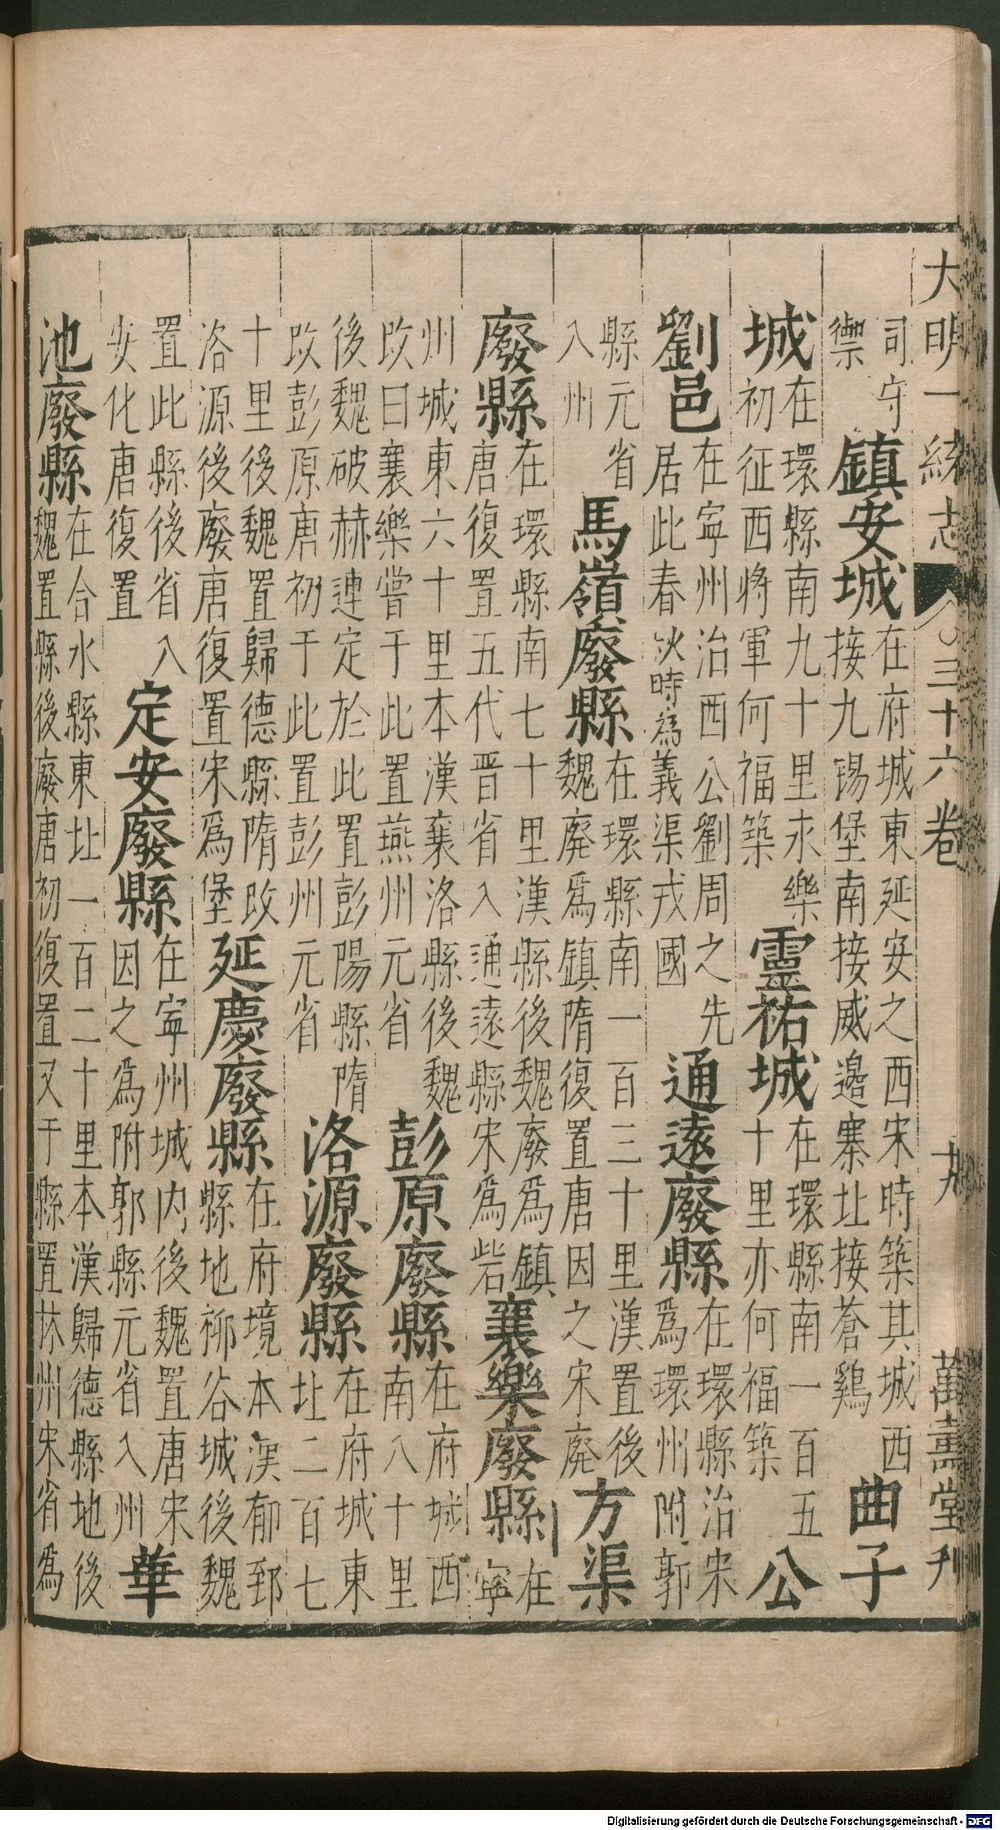 大明一統志 三十六卷 九 萬壽堂刊
司守禦 鎮安城 在府城東延安之西宋時築其城西接九陽堡南接威邊寨北接蒼鷄 曲子
城 在環縣南九十里永樂初征西將軍何福築 靈祐城 在環縣南一百五十里亦何福築 公
劉邑 在寧州治西公劉周之先居此春秋時為義渠戎國 通遠廢縣 在環縣治宋爲環州附郭
縣元省入州 馬嶺廢縣 在環縣南一百三十里漢置後魏廢爲鎮隋復置唐因之宋廢 方渠
廢縣 在環縣南七十里漢縣後魏廢爲鎮唐復置五代晉省入通遠縣宋爲砦 襄樂廢縣 在寧
州城東六十里本漢襄洛縣後魏改曰襄樂嘗于此置燕州元省 彭原廢縣 在府城西南八十里
後魏破赫連定於此置彭陽縣隋改彭原唐初于此置彭州元省 洛源廢縣 在府城東北二百七
十里後魏置歸德縣隋改洛源後廢唐復置宋爲堡 延慶廢縣 在府境本漢郁郅縣地栁谷城後魏
置此縣後省入安化唐復置 定安廢縣 在寧州城内後魏置唐宋因之爲附郭縣元省入州 華
池廢縣 在合水縣東北一百二十里本漢歸德縣地後魏置縣後廢唐初復置又于縣置林州宋省爲
Digitalisierung gefördert durch die Deutsche Forschungsgemeinschaft - DFG